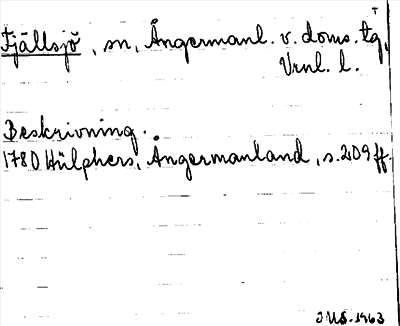 Fjällsjö, sn, Ångermanl. v. doms. tg,
Vrnl. l.
Beskrivning.
1780 Hülphers, Ångermanland, s. 209 ff.
JUS. 1963